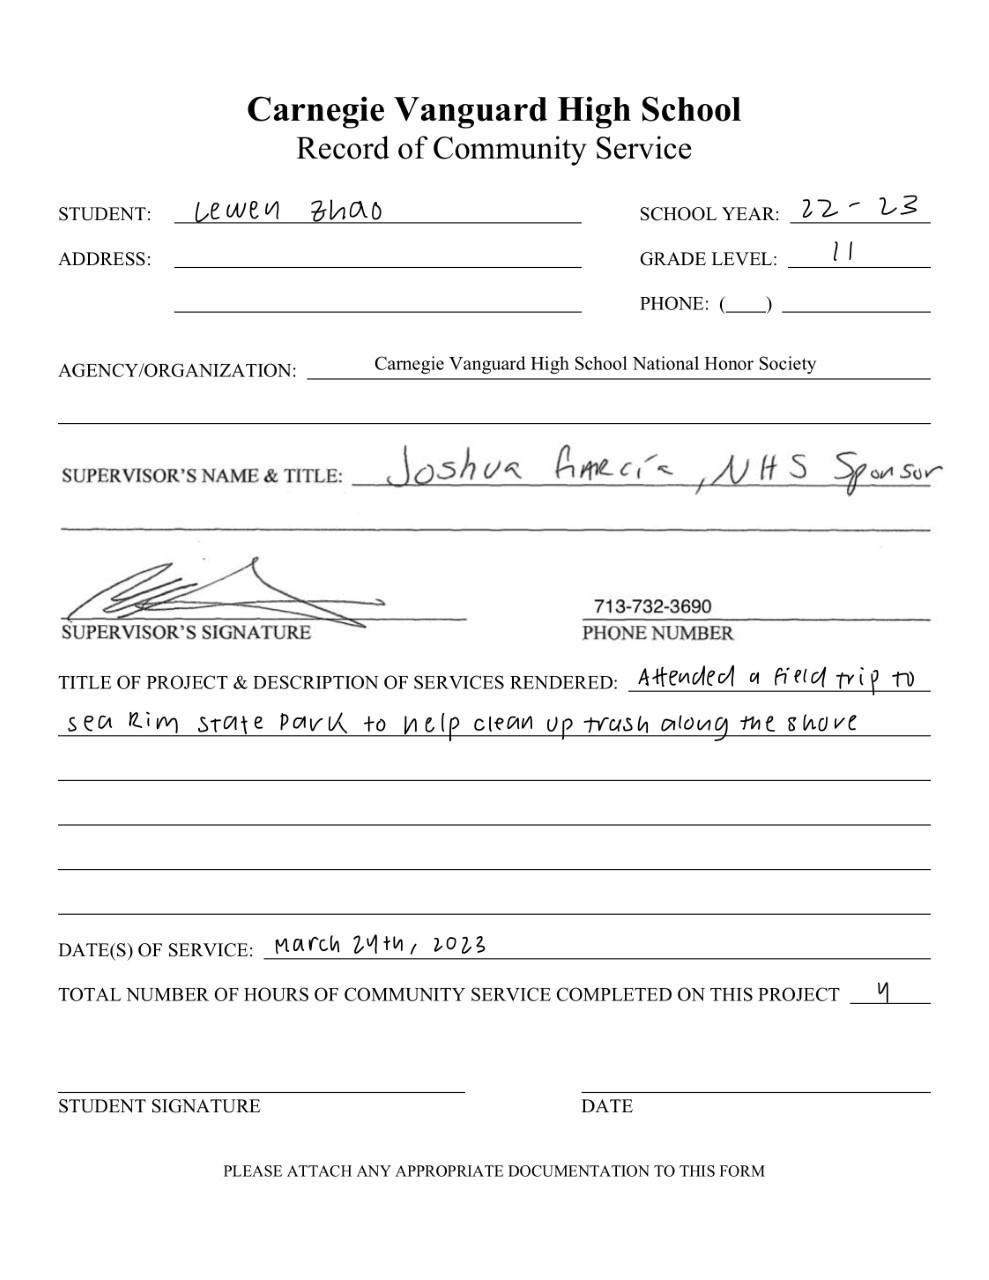 Carnegie Vanguard High School
Record of Community Service
STUDENT: Lewen Zhao SCHOOL YEAR: 22-23
ADDRESS: GRADE LEVEL: 11
PHONE: ( )
AGENCY/ORGANIZATION: Carnegie Vanguard High School National Honor Society
SUPERVISOR'S NAME & TITLE: Joshua , NHS Sponsor
713-732-3690
SUPERVISOR'S SIGNATURE PHONE NUMBER
TITLE OF PROJECT & DESCRIPTION OF SERVICES RENDERED: Attended a field trip to
sea Rim state Park to help clean up trash along the shore
DATE(S) OF SERVICE: March 24th, 2023
TOTAL NUMBER OF HOURS OF COMMUNITY SERVICE COMPLETED ON THIS PROJECT 4
STUDENT SIGNATURE DATE
PLEASE ATTACH ANY APPROPRIATE DOCUMENTATION TO THIS FORM